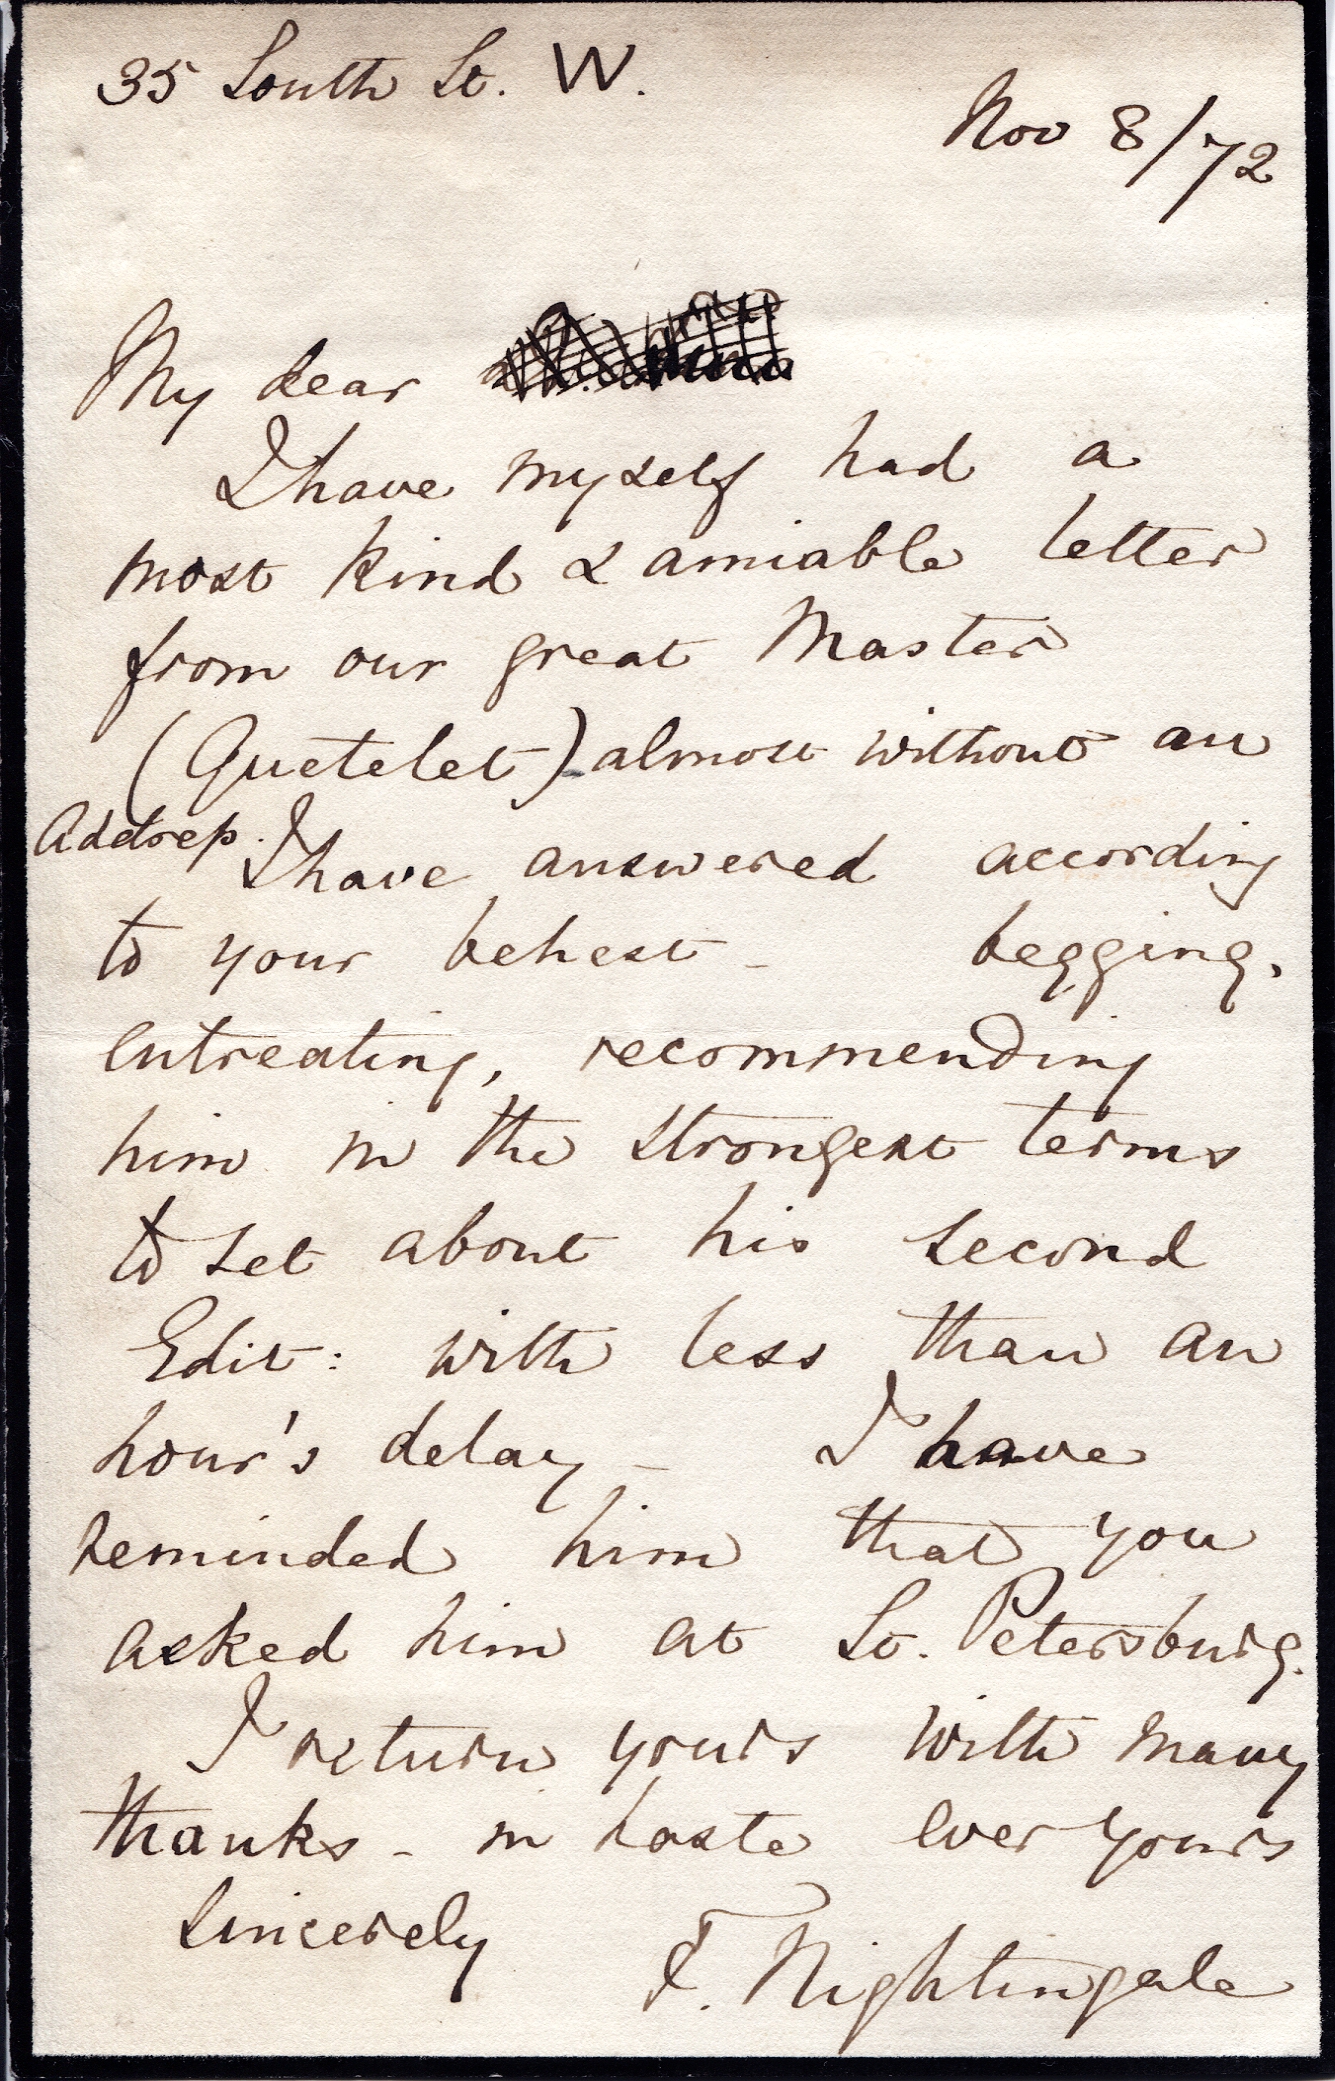 35 South St. W.
Nov 8/72
My dear
I have myself had a
most kind & amiable letter
from our great Master
(Quetelet) almost without an
Address. I have answered according
to your behest - begging,
entreating, recommending
him in the strongest terms
to set about his second
Edit: with less than an
hour's delay - I have
reminded him that you
asked him at St. Petersburg.
I return yours with many
thanks - in haste ever yours
sincerely
F. Nightingale